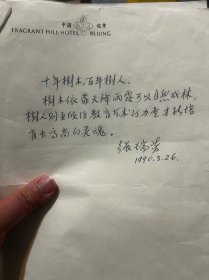 中国 北京
FRAGRANT HILL HOTEL BEIJING
十年樹木，百年樹人。
樹木依靠天降雨露可以自然成林，
樹人则要依仗教育艺术的力量才能培
育出高尚的灵魂。
張瑞芳
1990.3.26.